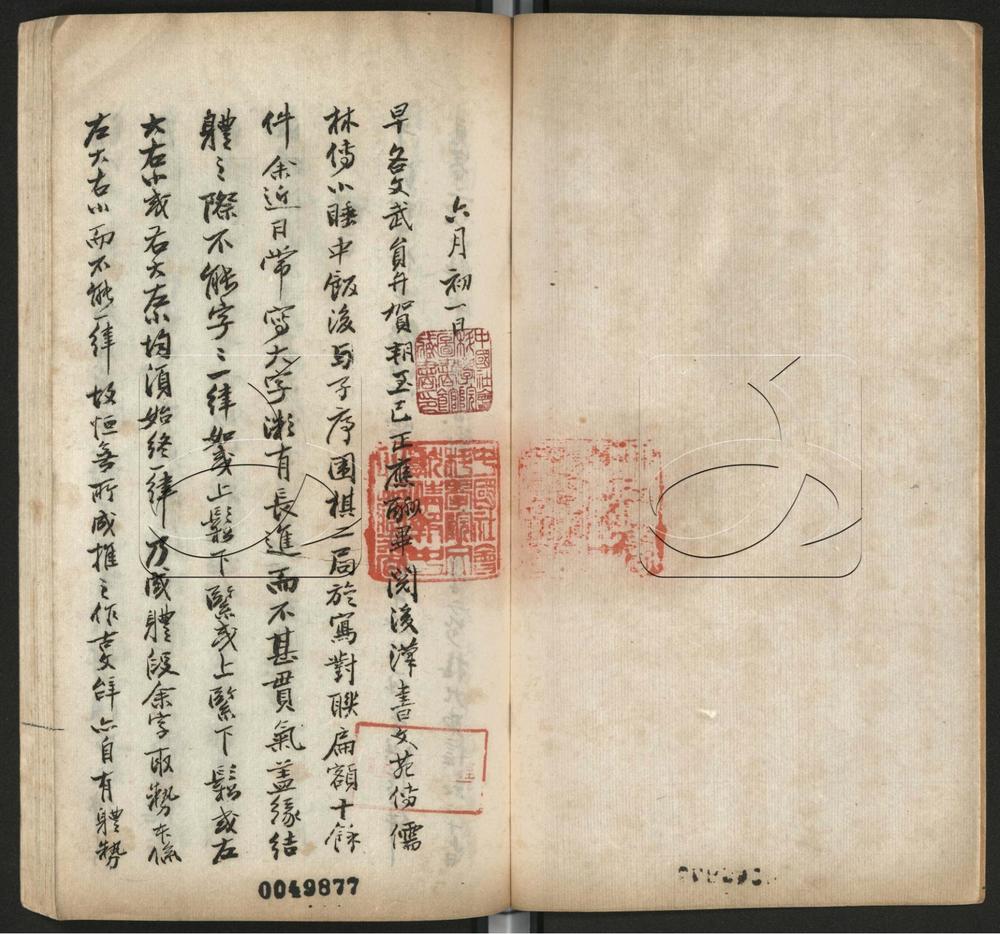 六月初一日
早各文武員弁賀朔至巳正應酬畢閱後漢書文苑傳儒
林傳小睡中飯後與子序圍棋二局於寫對聯扁額十餘
件余近日常寫大字漸有長進而不甚貫氣蓋緣結
體之際不能字〻一律如或上鬆下緊或上緊下鬆或左
大右小或右大左小均須始終一律乃成體段余字取勢本係
左大右小而不能一律故恒無所成推之作古文辭亦自有體勢
0049877